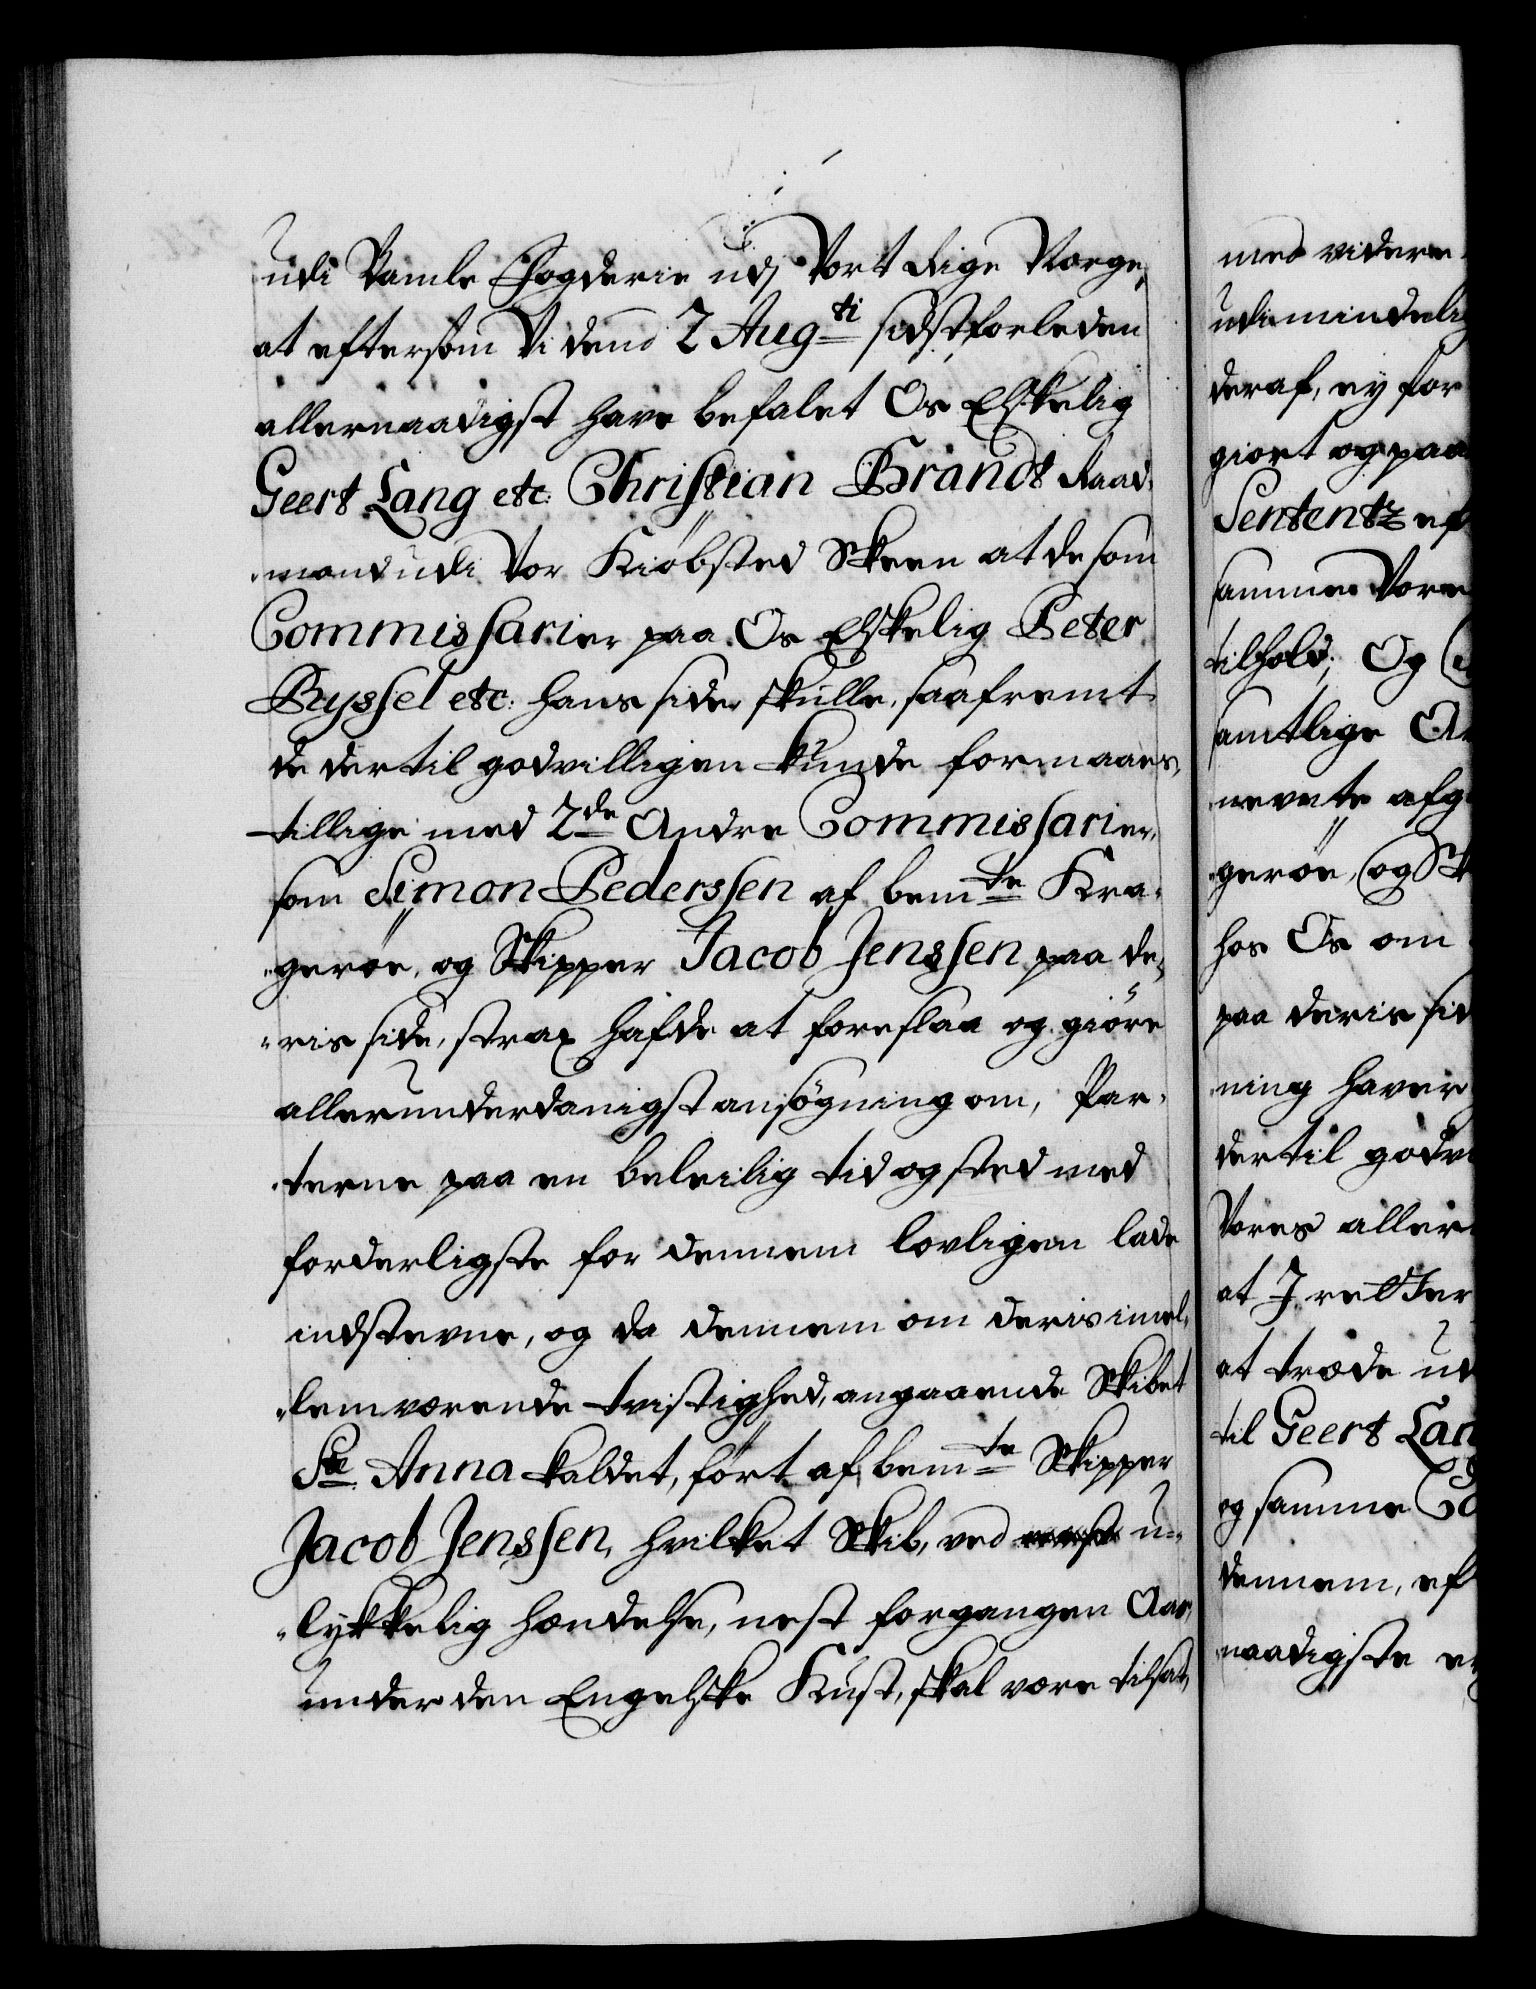 udi Bamle Fogderie udj Vort Rige Norge,
at eftersom Vi dend 2 Aug:ti sidstforleden
allernaadigst have befalet Os Elskelig
Geert Lang etc: Christian Brandt Raad-
mand udi Vor Kiöbsted Skeen at de som
Commissarier paa Os Elskelig Peter
Byssel etc: hans side, skulle, saafremt
de dertil godvilligen kunde formaaes,
tillige med 2de Andre Commissarier,
som Simon Pederssen af bemte Kra-
geröe, og Skipper Jacob Jenssen paa de-
ris side, strax hafde at foreslaa og giöre
allerunderdanigst ansögning om, Par-
terne paa en beleilig tid og sted med
forderligste for dennem lovligen lade
indstevne, og da dennem om deris imel-
lem værende tvistighed, angaaende Skibet
Ste Anna kaldet, fört af bemte Skipper
Jacob Jenssen, hvilket Skib, ved u-
lykkelig hændelse, nest forgangen Aar,
under den Engelske Kust, skal være tilsat,
med videre
udi mindelig
deraf, ey for
giort og paa
Sententz ef
samme Vore
tilhold; Og
samtlige
nevnte afg
geröe, og Sk
hos Os om
paa deris sid
ning haver
dertil godv
Vores aller
at I retter
at træde ud
til Geert Lan
og samme Co
dennem, ef
naadigste